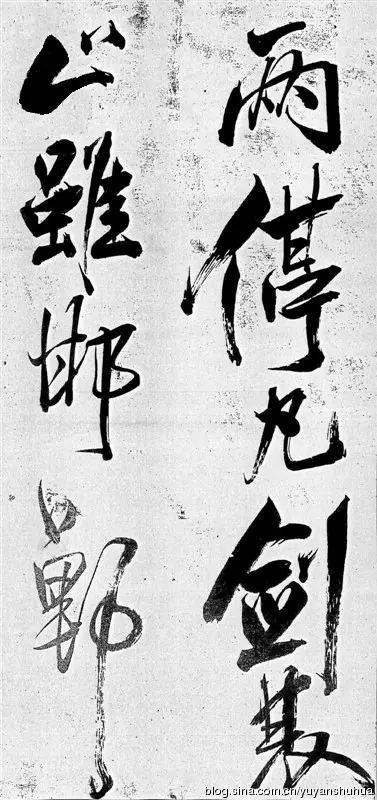 兩停凡劍
心雖邯鄲
blog.sina.com.cn/yuyanshuhua